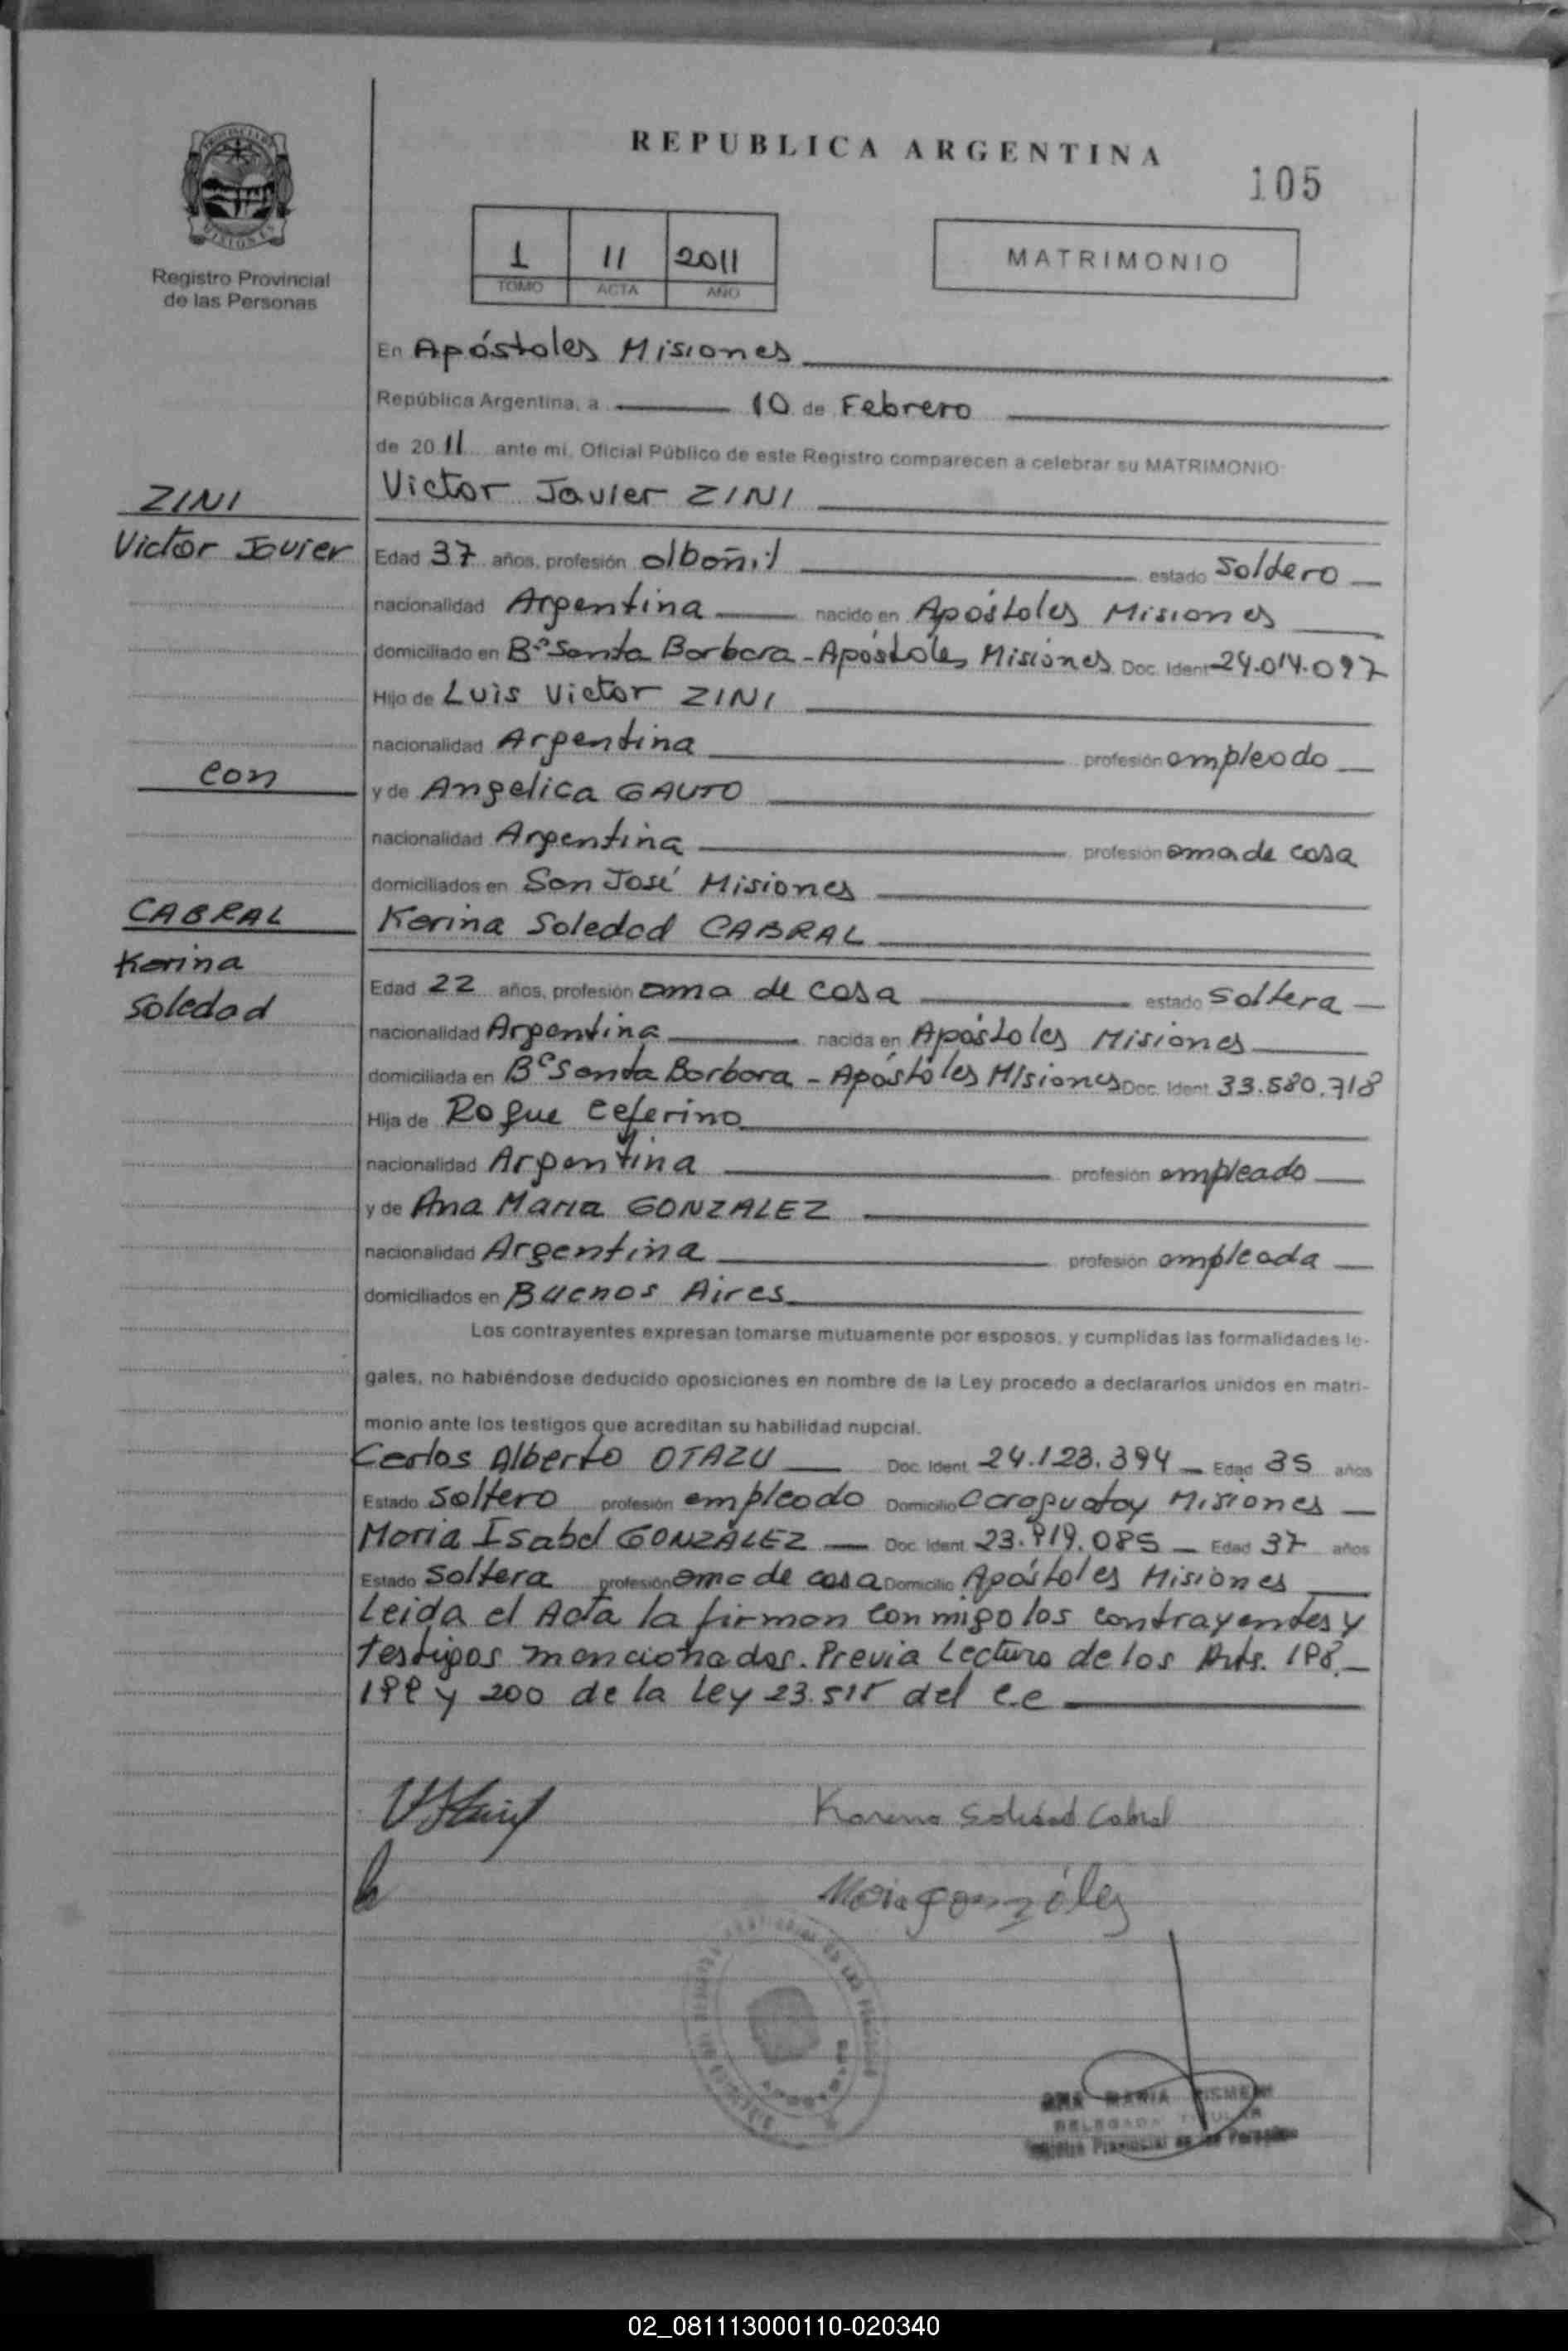 REPUBLICA ARGENTINA
105
Registro Provincial
de las Personas
1 11 2011
TOMO ACTA AÑO
MATRIMONIO
En Apóstoles Misiones
República Argentina, a 10 de Febrero
de 2011 ante mi, Oficial Público de este Registro comparecen a celebrar su MATRIMONIO:
ZINI
Victor Javier ZINI
Victor Javier
Edad 37 años, profesión albañil estado Soltero
nacionalidad Argentina nacido en Apóstoles Misiones
domiciliado en B° Santa Barbara - Apóstoles Misiones Doc. Ident 24.014.097
Hijo de Luis Victor ZINI
nacionalidad Argentina profesión empleado
con
y de Angelica GAUTO
nacionalidad Argentina profesión ama de casa
domiciliados en San José Misiones
CABRAL
Karina Soledad CABRAL
Karina
Soledad
Edad 22 años, profesión ama de casa estado Soltera
nacionalidad Argentina nacida en Apóstoles Misiones
domiciliada en B° Santa Barbara - Apóstoles Misiones Doc. Ident 33.580.718
Hija de Roque Ceferino
nacionalidad Argentina profesión empleado
y de Ana Maria GONZALEZ
nacionalidad Argentina profesión empleada
domiciliados en Buenos Aires
Los contrayentes expresan tomarse mutuamente por esposos, y cumplidas las formalidades le-
gales, no habiéndose deducido oposiciones en nombre de la Ley procedo a declararlos unidos en matri-
monio ante los testigos que acreditan su habilidad nupcial.
Carlos Alberto OTAZU Doc. Ident. 24.123.394 - Edad 35 años
Estado Soltero profesión empleado Domicilio Caraguatay Misiones
Maria Isabel GONZÁLEZ Doc. Ident. 23.919.085 - Edad 37 años
Estado Soltera profesión ama de casa Domicilio Apóstoles Misiones
Leida el Acta la firman conmigo los contrayentes y
testigos mencionados. Previa Lectura de los Arts. 198,
199 y 200 de la Ley 23.515 del C.C
Karena Soledad Cabral
Maria González
ANA MARIA
DELEGADA TITULAR
Registro Provincial de las Personas
02_081113000110-020340